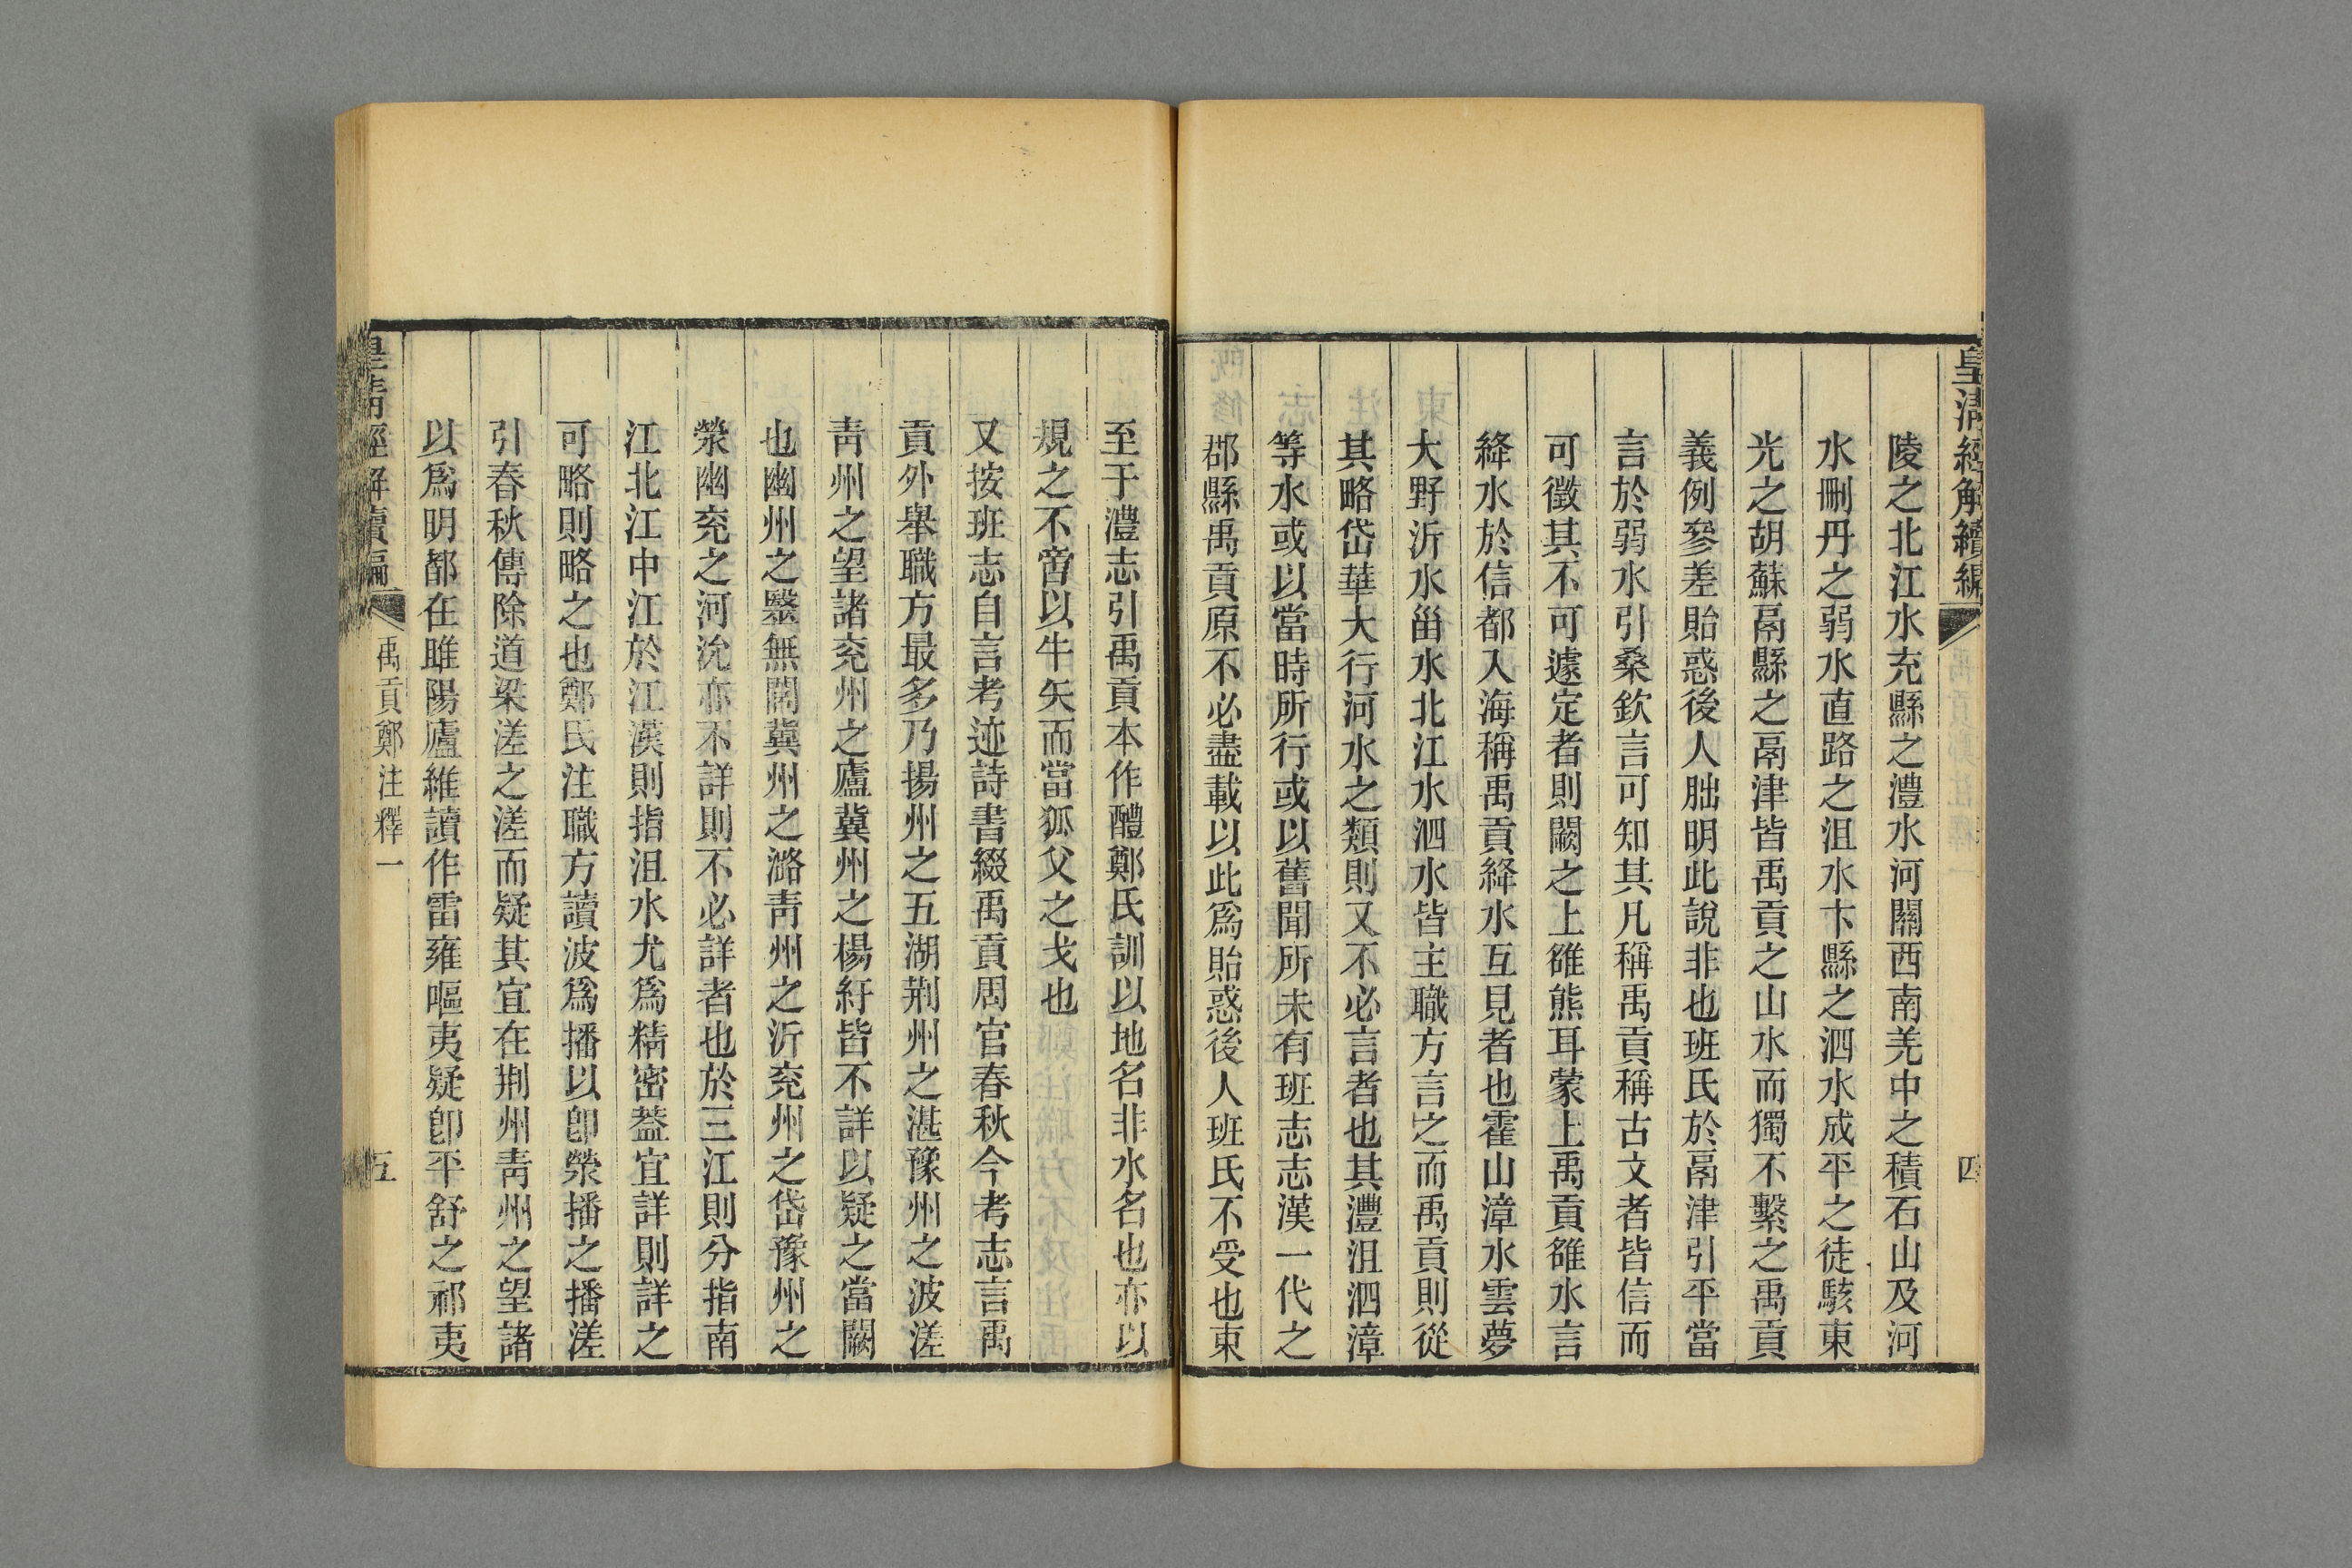 皇清經解續編
四
陵之北江水充縣之澧水河關西南羌中之積石山及河
水刪丹之弱水直路之沮水卞縣之泗水成平之徒駭東
光之胡蘇鬲縣之鬲津皆禹貢之山水而獨不繫之禹貢
義例參差貽惑後人朏明此說非也班氏於鬲津引平當
言於弱水引桑欽言可知其凡稱禹貢稱古文者皆信而
可徵其不可遽定者則闕之上雒熊耳蒙上禹貢雒水言
絳水於信都入海稱禹貢絳水互見者也霍山漳水雲夢
大野沂水甾水北江水泗水皆主職方言之而禹貢則從
其略岱華大行河水之類則又不必言者也其灃沮泗漳
等水或以當時所行或以舊聞所未有班志志漢一代之
郡縣禹貢原不必盡載以此爲貽惑後人班氏不受也東
至于澧志引禹貢本作醴鄭氏訓以地名非水名也亦以
規之不啻以牛矢而當狐父之戈也
又按班志自言考迹詩書綴禹貢周官春秋今考志言禹
貢外舉職方最多乃揚州之五湖荆州之湛豫州之波溠
靑州之望諸兖州之廬冀州之楊紆皆不詳以疑之當闕
也幽州之毉無閭冀州之潞靑州之沂兖州之岱豫州之
滎幽兖之河沇亦不詳則不必詳者也於三江則分指南
江北江中江於江漢則指沮水尤爲精密葢宜詳則詳之
可略則略之也鄭氏注職方讀波爲播以卽滎播之播溠
引春秋傳除道梁溠之溠而疑其宜在荆州靑州之望諸
以爲明都在睢陽廬維讀作雷雍嘔夷疑卽平舒之祁夷
皇淸經解續編
禹貢鄭注釋一
五